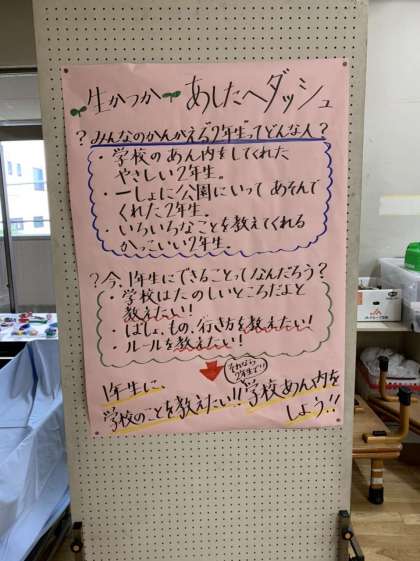 生かつか あしたへダッシュ
?みんなのかんがえる"2年生"ってどんな人?
・学校のあん内をしてくれた
やさしい2年生。
・一しょに公園にいって あそんで
くれた2年生。
・いろいろなことを教えてくれる
かっこいい2年生。
?今、1年生にできることってなんだろう?
・学校はたのしいところだよと
教えたい!
・ばしょ、もの、行き方を教えたい!
・ルールを教えたい!
それなら
2年生で!!
1年生に、
学校のことを教えたい!!学校あん内を
しよう!!